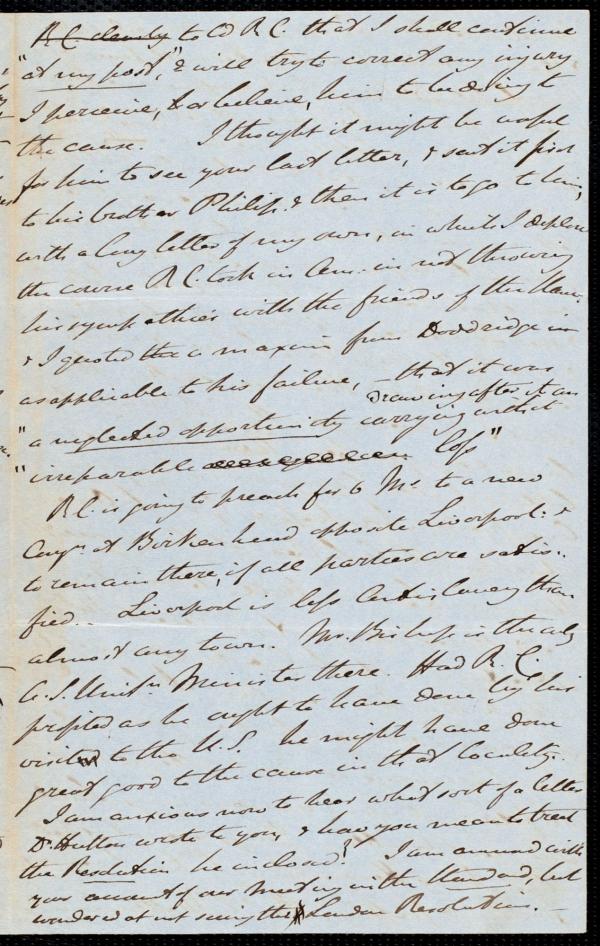 R C clearly to W R C. that I shall continue
"at my post," & will try to correct any injury
I perceive, & or believe, him to be doing to
the cause. I thought it might be useful
for him to see your last letter, & sent it first
to his brother Philip. & then it is to go to him,
with a long letter of my own, in which I deplore
the course R C. took in Am. in not throwing
his sympathies with the friends of the slave
& I quoted the maxim from Doddridge in
as applicable to his failure, – that it was
"a neglected opportunity carrying with it
drawing after it an
"irreparable loss"
R C. is going to preach for 6 Ms. to a new
Congn. at Birkenhead opposite Liverpool: &
to remain there, if all parties are satis-
fied. Liverpool is less Anti Slavery than
almost any town. Mr. Bishop is the only
A. S. Unitn. Minister there. Had R. C.
profited as he ought to have done by his
visit to the U. S. he might have done
great good to the cause in that locality.
I am anxious now to hear what sort of a letter
Dr. Hutton wrote to you, & how you mean to treat
the Resolution he inclosed? I am amused with
your account of our meeting in the Standard, but
wondered at not seeing the London Resolutions.–